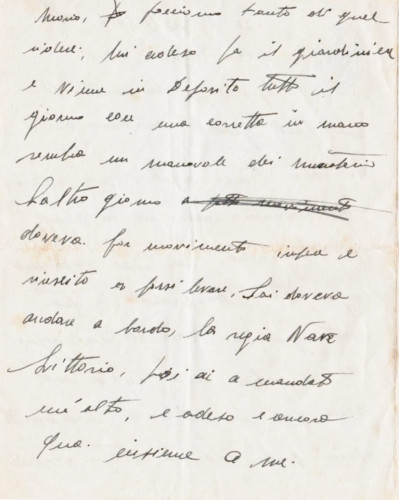 Mario, facciamo tanto di quel
ridere, lui adeso fa il giardinier
e viene in Deposito tutti il
giorno con una carretta in mano
sembra un manovale dei
L'altro giorno a
doveva far movimento infra e
riuscito a farsi levare, Lui doveva
andare a bordo, la regia Nave
Littorio, poi ai a mandato
un'altro, e adeso e ancora
qua. insieme a me.